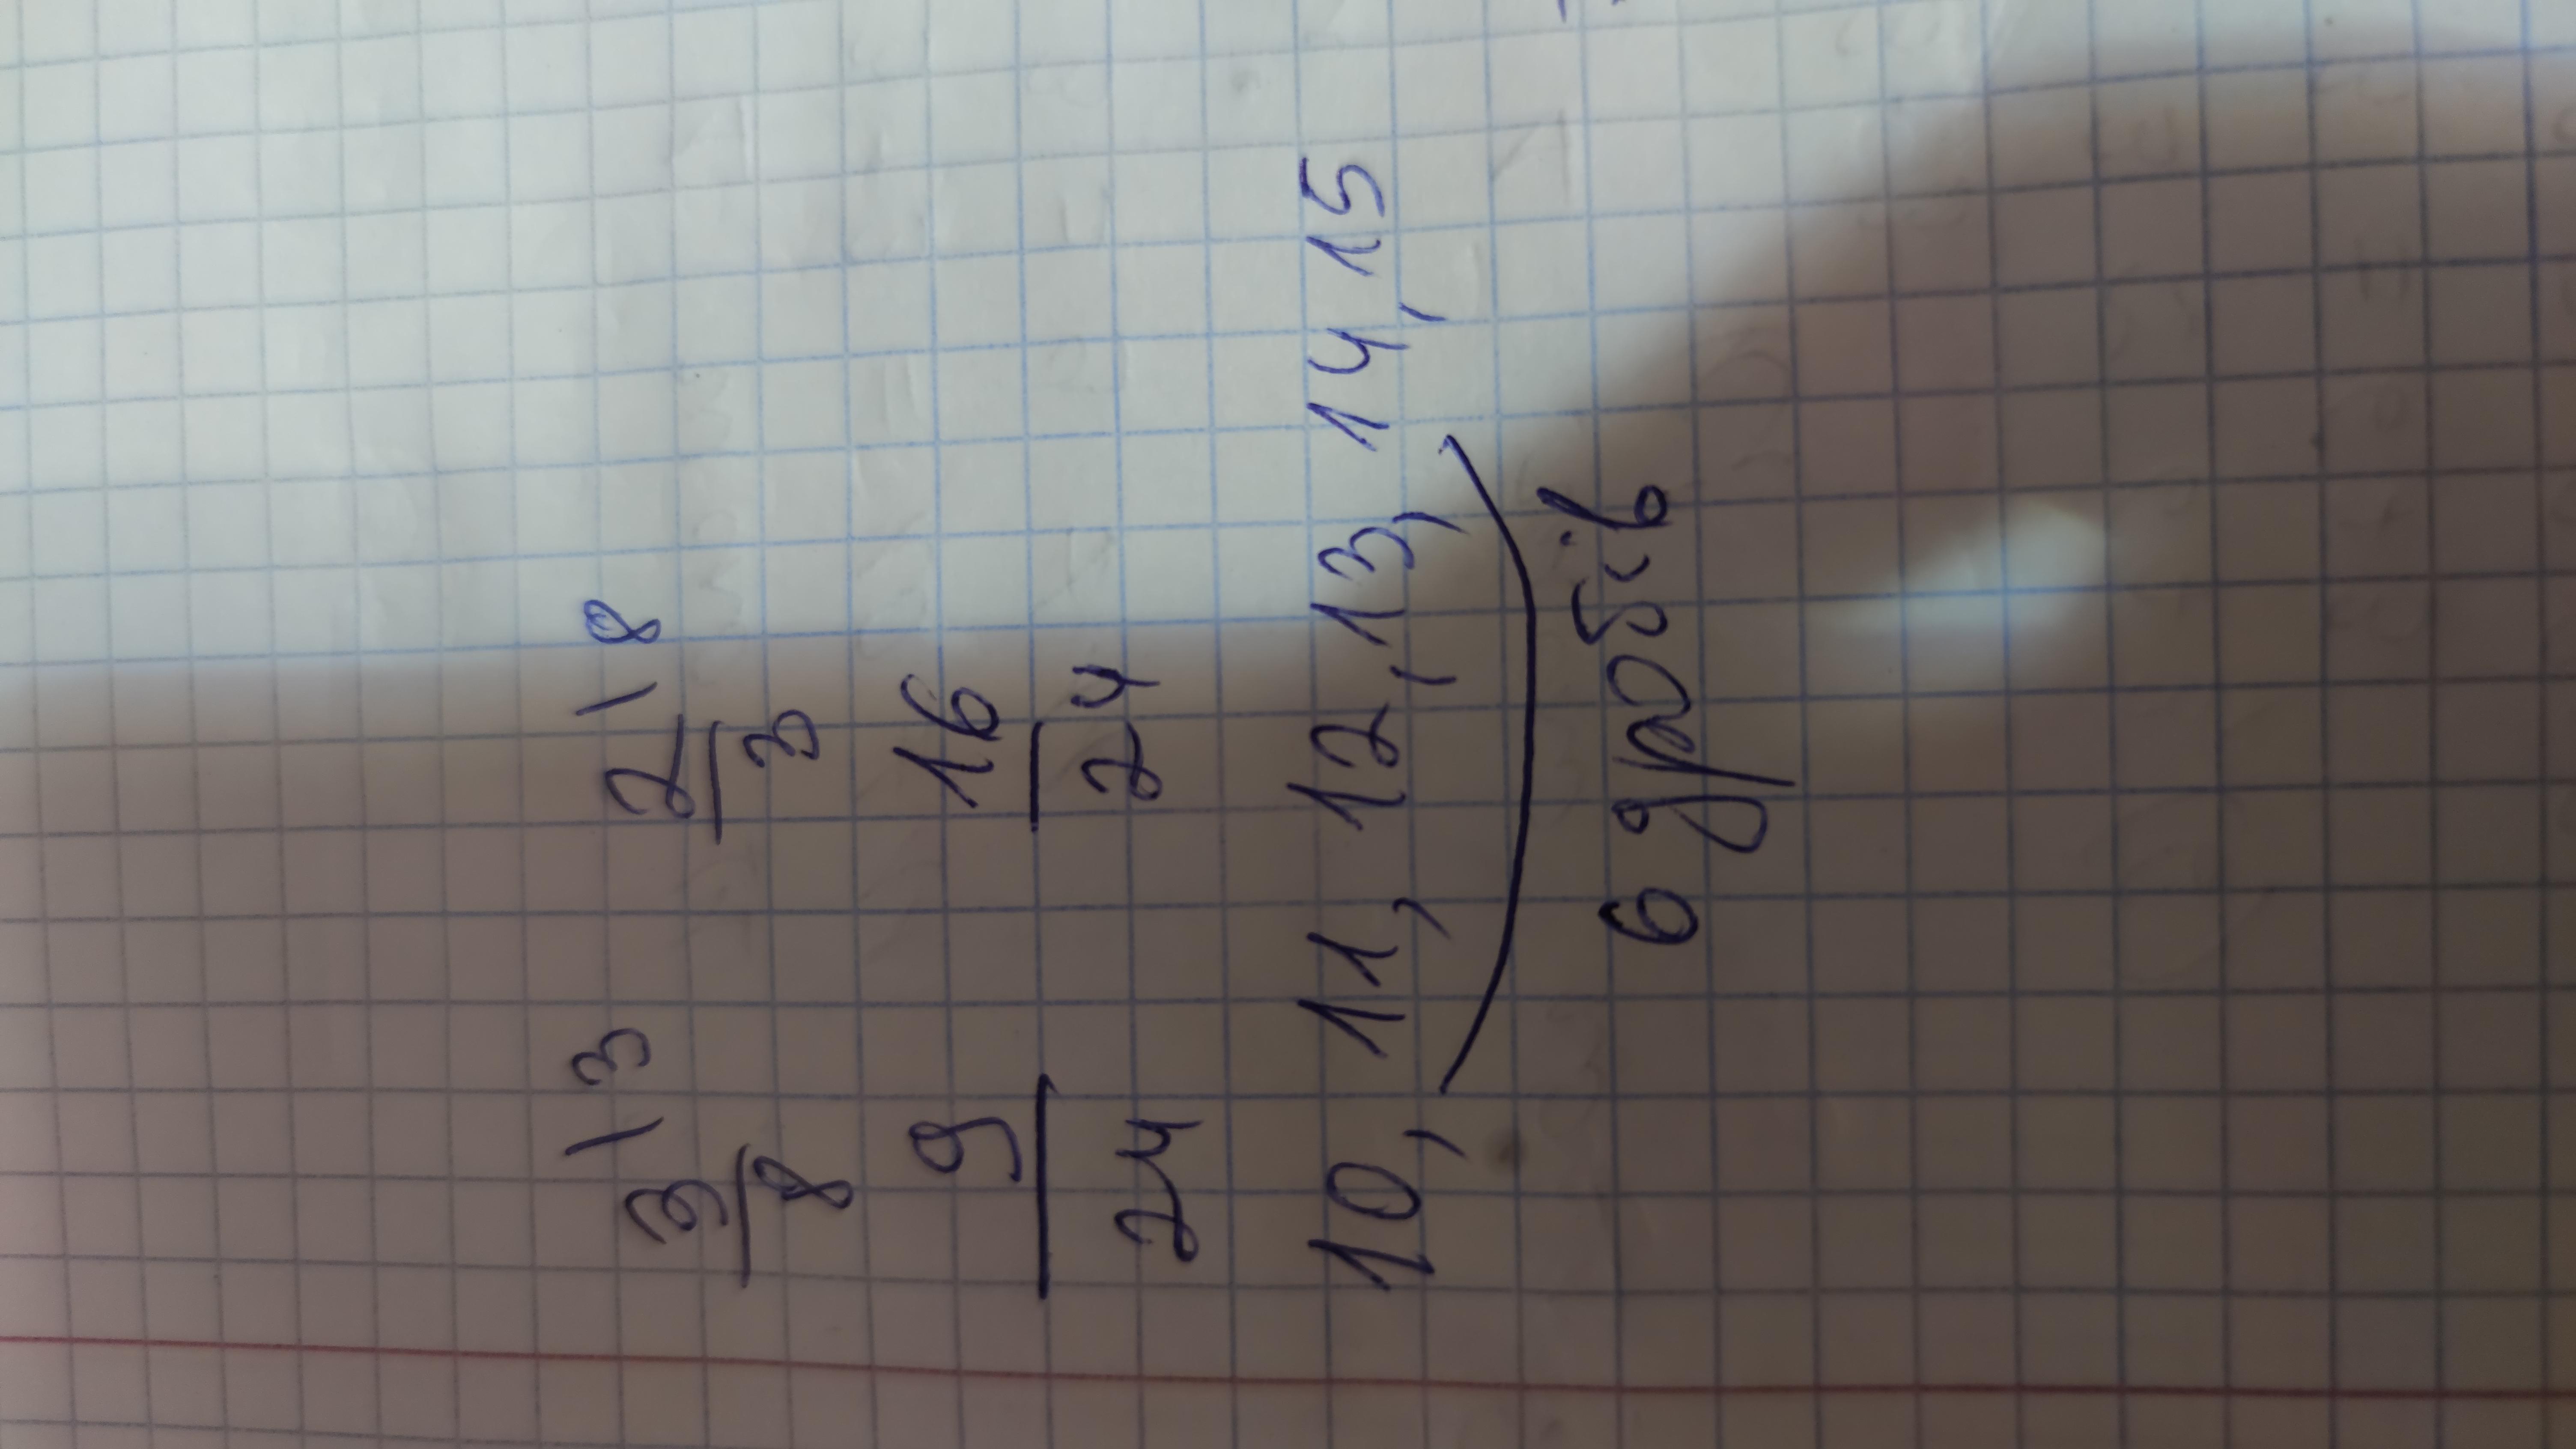 3\3 2\8
8 3
9 16
24 24
10, 11, 12, 13, 14, 15
6 дробів